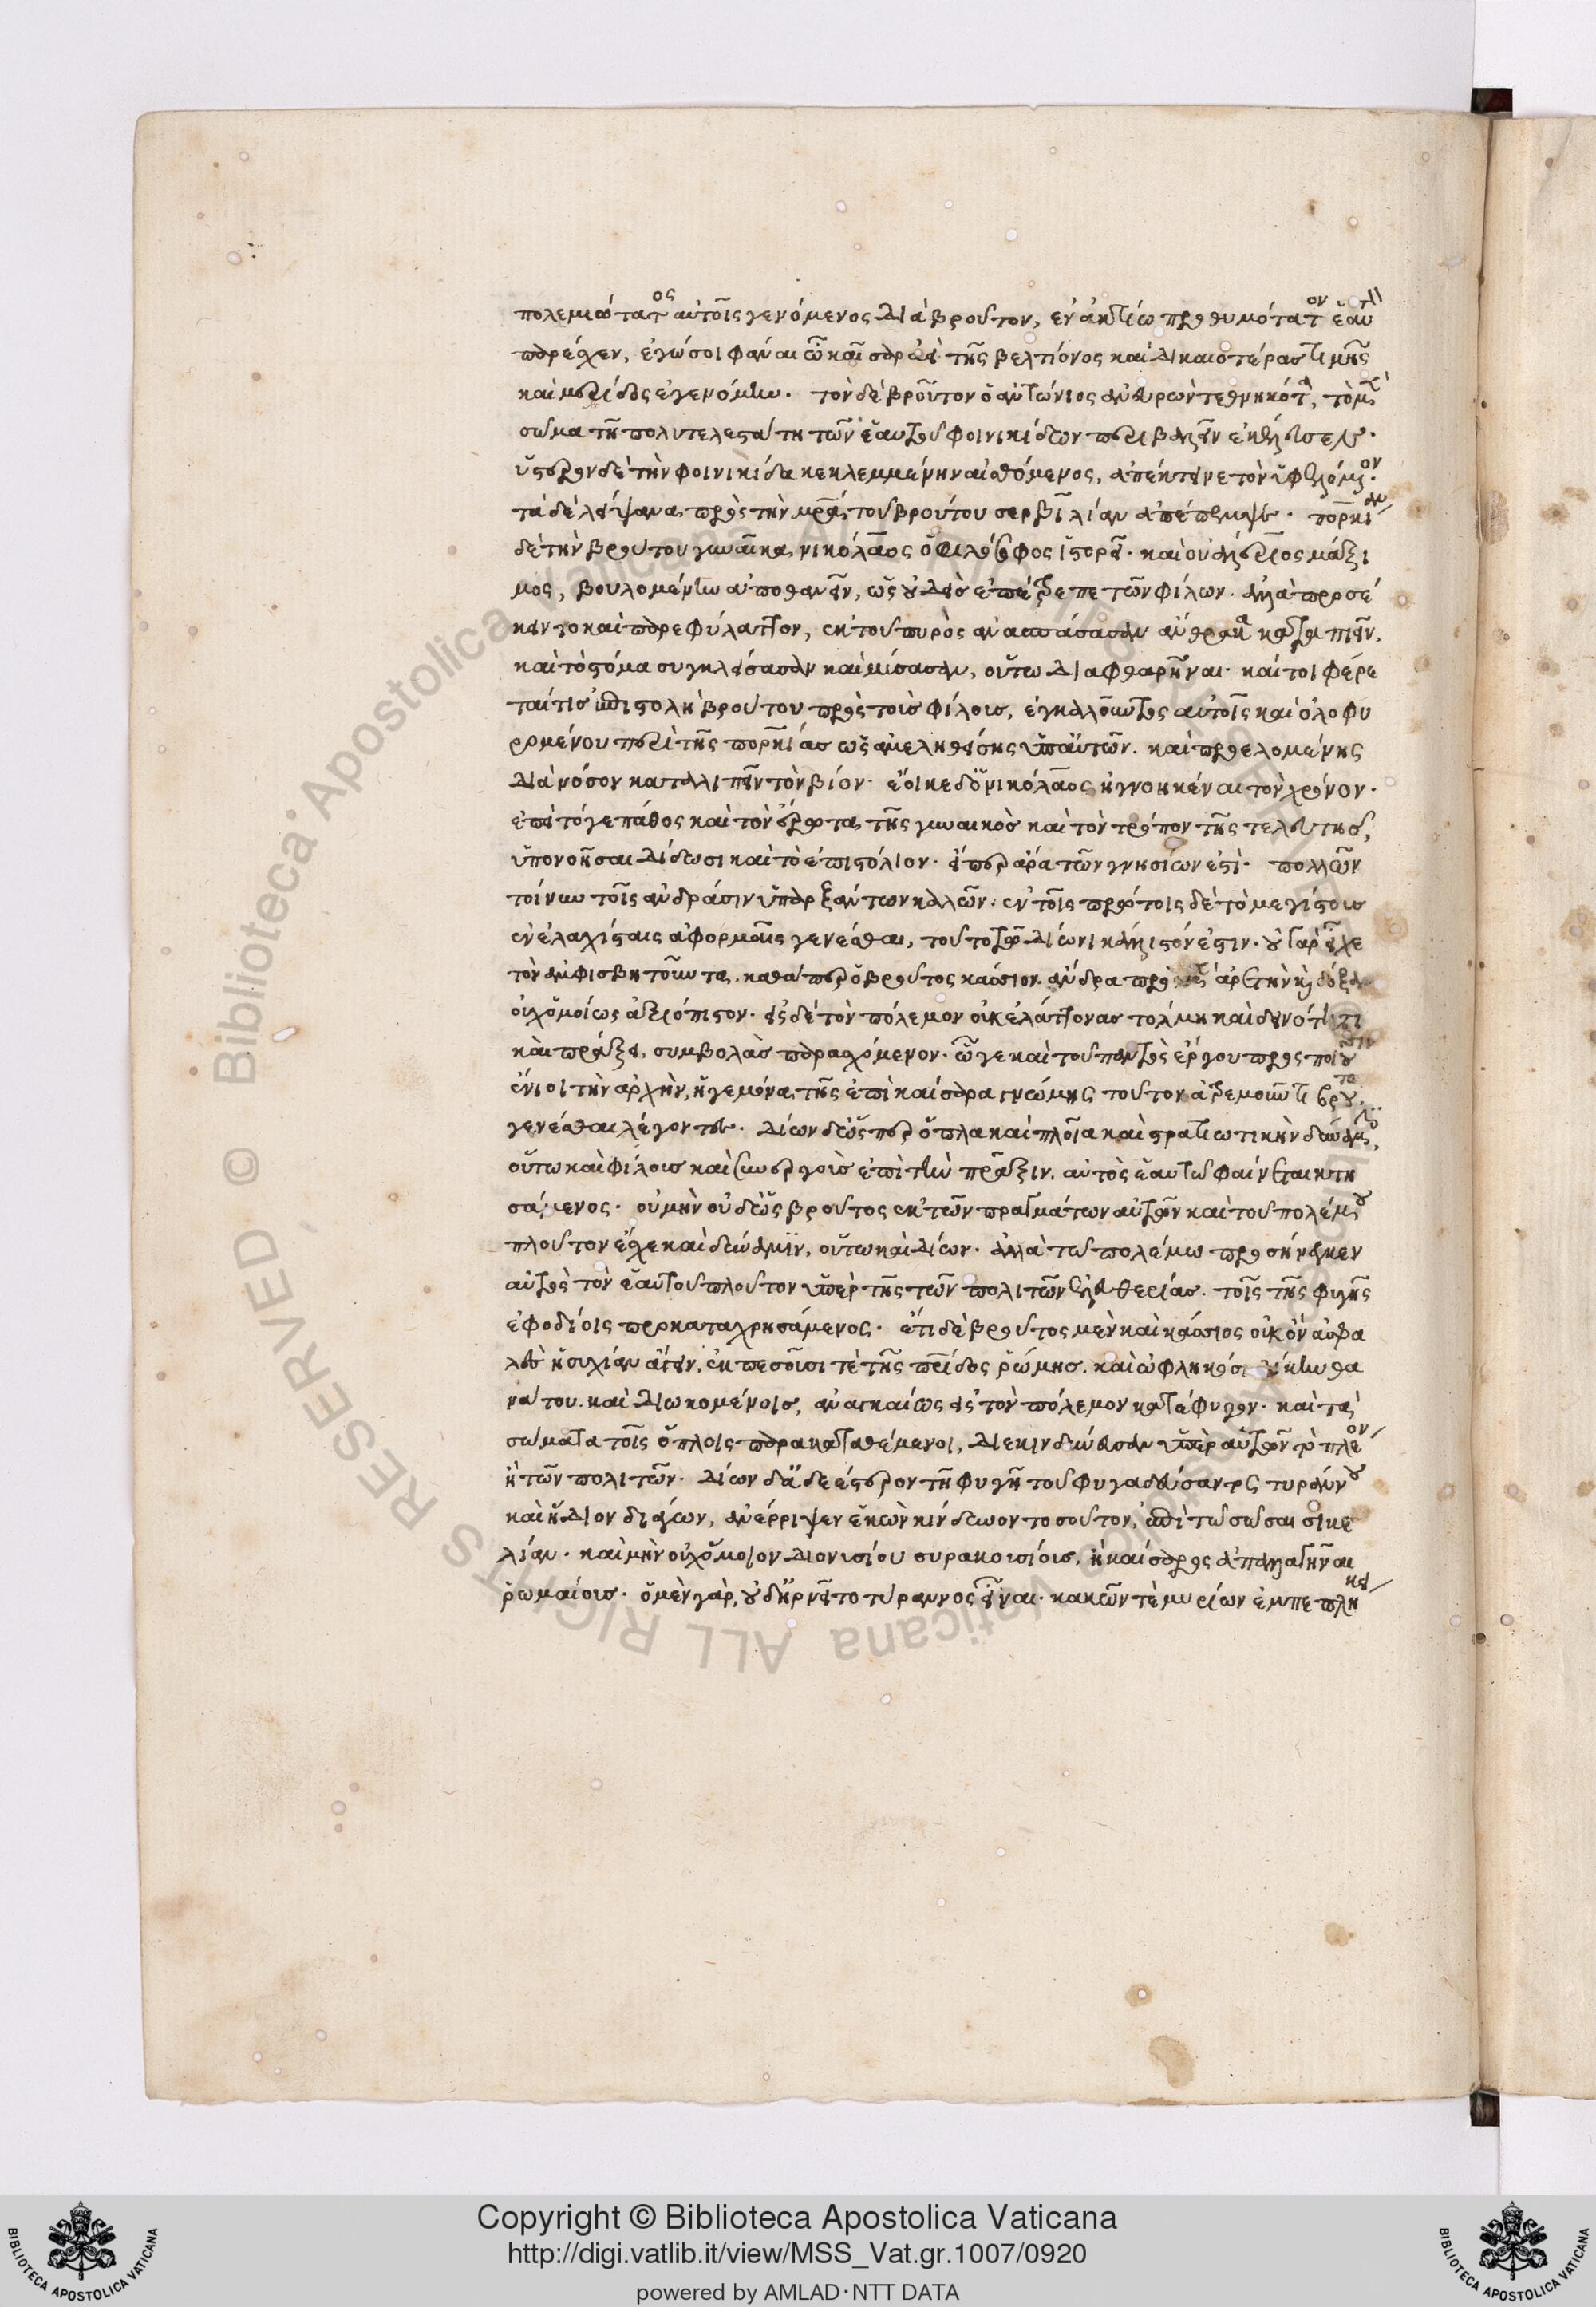 πολεμιώτατος αὐτοῖς γενόμενος διὰ βροῦτον, ἐν ἀκτίω προθυμότατον ἑαυτὸν
παρέχεν, ἐγώ σοι φάναι ὦ καῖσαρ ἀεὶ τῆς βελτίονος καὶ δικαιοτέρας τιμῆς
καὶ μερίδος ἐγενόμην. τὸν δὲ βροῦτον ὁ ἀντώνιος ἀνευρὼν τεθνηκότα, τὸ μὲν
σῶμα τῆ πολυτελεστάτη τῶν ἑαυτοῦ φοινικίδων περιβαλεῖν ἐκέλευσεν.
ὕστερον δὲ τὴν φοινικίδα κεκλεμμένην αἰσθόμενος, ἀπέκτεινε τὸν ὑφελόμενον.
τὰ δὲ λείψανα πρὸς τὴν μητέρα τοῦ βρούτου σερβιλίαν ἀπέπεμψε. πορκίαν
δὲ τὴν βρούτου γυναῖκα νικόλαος ὁ φιλόσοφος ἱστορεῖ. καὶ οὐαλέριος μάξι
μος, βουλομένην ἀποθανεῖν, ὡς οὐδεὶς ἐπέτρεπε τῶν φίλων. ἀλλὰ προσέ
κειντο καὶ παρεφύλαττον, ἐκ τοῦ πυρὸς ἀνασπάσασαν ἄνθρακα καταπιεῖν.
καὶ τὸ στόμα συγκλείσασαν καὶ μύσασαν, οὕτω διαφθαρῆναι. καίτοι φέρε
ταί τις ἐπιστολὴ βρούτου πρὸς τοὺς φίλοις, ἐγκαλοῦντος αὐτοῖς καὶ ὀλοφυ
ρομένου περὶ τῆς πορκίας ὡς ἀμεληθείσης ὑπ' αὐτῶν. καὶ προελομένης
διὰ νόσον καταλιπεῖν τὸν βίον. ἔοικε δ' ὁ νικόλαος ἠγνοηκέναι τὸν χρόνον.
ἐπεὶ τό γε πάθος καὶ τὸν ἔρωτα τῆς γυναικὸς καὶ τὸν τρόπον τῆς τελευτῆς,
ὑπονοῆσαι δίδωσι καὶ τὸ ἐπιστόλιον. εἴπερ ἄρα τῶν γνησίων ἐστί. πολλῶν
τοίνυν τοῖς ἀνδράσιν ὑπαρξάντων καλῶν. ἐν τοῖς πρώτοις δὲ τὸ μεγίστοις
ἐν ἐλαχίσταις ἀφορμαῖς γενέσθαι, τοῦτο τῶ δίωνι κάλλιστόν ἐστιν. οὐ γὰρ εἶχε
τὸν ἀμφισβητοῦντα. καθάπερ ὁ βροῦτος κάσσιον. ἄνδρα πρὸς μὲν ἀρετὴν καὶ δόξαν
οὐχ ὁμοίως ἀξιόπιστον. εἰς δὲ τὸν πόλεμον οὐκ ἐλάττονας τόλμη καὶ δεινότητι
καὶ πράξει, συμβολὰς παρασχόμενον. ὧ γε καὶ τοῦ παντὸς ἔργου προσποιοῦσιν
ἔνιοι τὴν ἀρχὴν, ἡγεμόνα τῆς ἐπὶ καίσαρα γνώμης τοῦτον ἀτρεμοῦντι βρούτω
γενέσθαι λέγοντες. δίων δ' ὥσπερ ὅπλα καὶ πλοῖα καὶ στρατιωτικὴν δύναμιν,
οὕτω καὶ φίλοις καὶ συνεργοὺς ἐπὶ τὴν πρᾶξιν. αὐτὸς ἑαυτῶ φαίνεται κτη
σάμενος. οὐ μὴν οὐδ' ὡς βροῦτος ἐκ τῶν πραγμάτων αὐτῶν καὶ τοῦ πολέμου
πλοῦτον ἔσχε καὶ δύναμιν, οὕτω καὶ δίων. ἀλλὰ τῶ πολέμω προεισήνεγκεν
αὐτὸς τὸν ἑαυτοῦ πλοῦτον ὑπὲρ τῆς τῶν πολιτῶν ἐλευθερίας. τοῖς τῆς φυγῆς
ἐφοδίοις προκαταχρησάμενος. ἔτι δὲ βροῦτος μὲν καὶ κάσσιος οὐκ ὂν ἀσφα
λὲς ἡσυχίαν ἄγειν, ἐκπεσοῦσί τε τῆς πατρίδος ῥώμης. καὶ ὠφληκόσι δίκην θα
νάτου. καὶ διωκομένοις, ἀναγκαίως εἰς τὸν πόλεμον κατέφυγον. καὶ τὰ
σώματα τοῖς ὅπλοις παρακαταθέμενοι, διεκινδύνευσαν ὑπὲρ αὐτῶν τὸ πλέον
ἢ τῶν πολιτῶν. δίων δ' ἀδεέστερον τῆ φυγῆ τοῦ φυγαδεύσαντος τυράννου
καὶ ἥδιον διάγων, ἀνέρριψεν ἑκὼν κίνδυνον τοσοῦτον, ἐπὶ τῶ σῶσαι σικε
λίαν. καὶ μὴν οὐχ ὅμοιον διονυσίου συρακουσίοις, ἢ καίσαρος ἀπαλλαγῆναι
ῥωμαίοις. ὁ μὲν γὰρ, οὐδ' ἠρνεῖτο τύραννος εἶναι. κακῶν τὲ μυρίων ἐμπεπλήκει